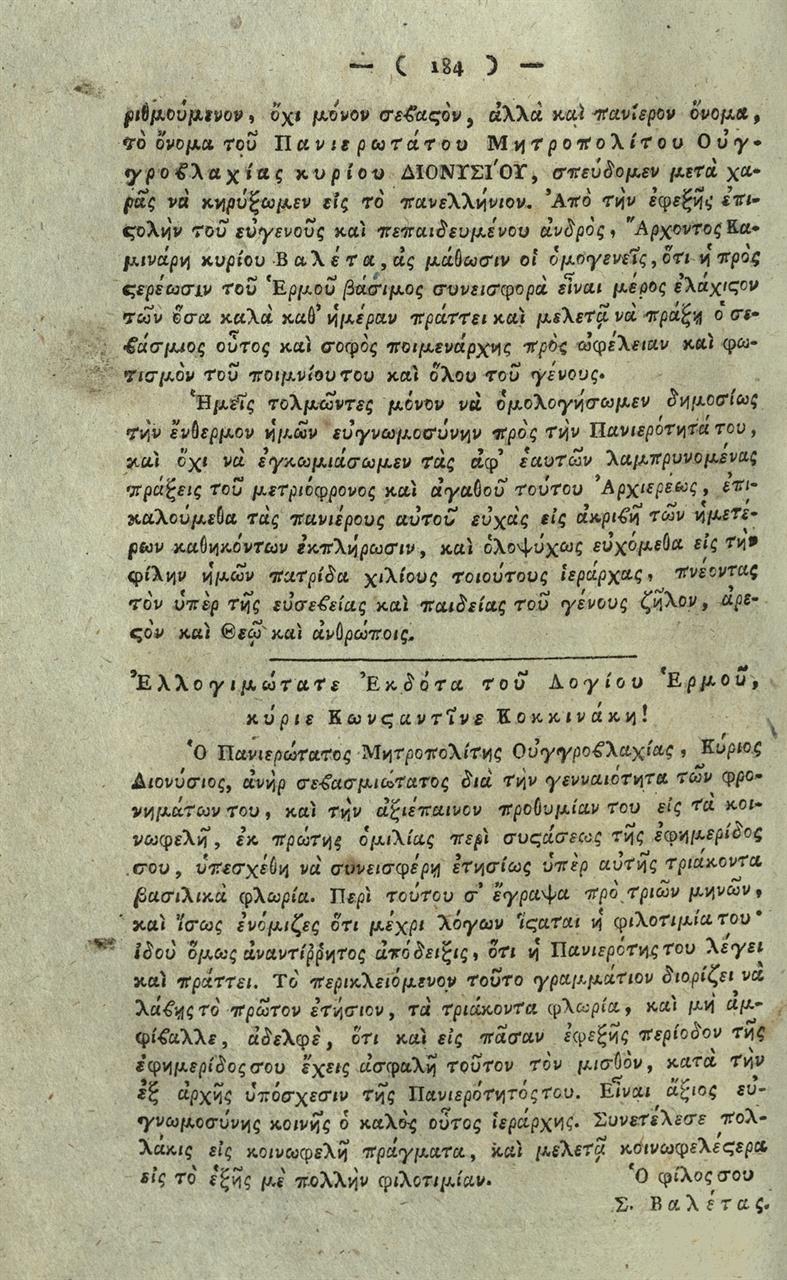 — ( 184 ) —
ριθμούμενον, ὄχι μόνον σεβαϛὸν, ἀλλὰ καὶ πανίερον ὄνομα,
τὸ ὄνομα τοῦ Πανιερωτάτου Μητροπολίτου Οὐγ-
γροβλαχίας κυρίου ΔΙΟΝΥΣΙ´ΟΥ, σπεύδομεν μετὰ χα-
ρᾶς νὰ κηρύξωμεν εἰς τὸ πανελλήνιον. Ἀπὸ τὴν ἐφεξῆς ἐπι-
ϛολὴν τοῦ εὐγενοῦς καὶ πεπαιδευμένου ἀνδρὸς, Ἄρχοντος Κα-
μινάρη κυρίου Βαλέτα, ἀς μάθωσιν οἱ ὁμογενεῖς, ὅτι ἡ πρὸς
ϛερέωσιν τοῦ Ἑρμοῦ βάσιμος συνεισφορὰ εἶναι μέρος ἐλάχιϛον
τῶν ὅσα καλὰ καθ' ἡμέραν πράττει καὶ μελετᾷ νὰ πράξῃ ὁ σε-
βάσμιος οὗτος καὶ σοφὸς ποιμενάρχης πρὸς ὠφέλειαν καὶ φω-
τισμὸν τοῦ ποιμνίου του καὶ ὅλου τοῦ γένους.
Ἡμεῖς τολμῶντες μόνον νὰ ὁμολογήσωμεν δημοσίως
τὴν ἔνθερμον ἡμῶν εὐγνωμοσύνην πρὸς τὴν Πανιερότητά του,
καὶ ὄχι νὰ ἐγκωμιάσωμεν τὰς ἀφ' ἑαυτῶν λαμπρυνομένας
πράξεις τοῦ μετριόφρονος καὶ ἀγαθοῦ τούτου Ἀρχιερέως, ἐπι-
καλούμεθα τὰς πανιέρους αὐτοῦ εὐχὰς εἰς ἀκριβῆ τῶν ἡμετέ-
ρων καθηκόντων ἐκπλήρωσιν, καὶ ὁλοψύχως εὐχόμεθα εἰς τὴν
φίλην ἡμῶν πατρίδα χιλίους τοιούτους ἱεράρχας, πνέοντας
τὸν ὑπὲρ τῆς εὐσεβείας καὶ παιδείας τοῦ γένους ζῆλον, ἀρε-
ϛὸν καὶ Θεῷ καὶ ἀνθρώποις.
Ἐλλογιμώτατε Ἐκδότα τοῦ Λογίου Ἑρμοῦ,
κύριε Κωνϛαντῖνε Κοκκινάκη!
Ὁ Πανιερώτατος Μητροπολίτης Οὑγγροβλαχίας, Κύριος
Διονύσιος, ἀνὴρ σεβασμιώτατος διὰ τὴν γενναιότητα τῶν φρο-
νημάτων του, καὶ τὴν ἀξιέπαινον προθυμίαν του εἰς τὰ κοι-
νωφελῆ, ἐκ πρώτης ὁμιλίας περὶ συϛάσεως τῆς ἐφημερίδος
σου, ὑπεσχέθη νὰ συνεισφέρῃ ἐτησίως ὑπὲρ αὐτῆς τριάκοντα
βασιλικὰ φλωρία. Περὶ τούτου σ' ἔγραψα πρὸ τριῶν μηνῶν,
καὶ ἴσως ἐνόμιζες ὅτι μέχρι λόγων ἵϛαται ἡ φιλοτιμία του·
ἰδοὺ ὅμως ἀναντίῤῥητος ἀπόδειξις, ὅτι ἡ Πανιερότης του λέγει
καὶ πράττει. Τὸ περικλειόμενον τοῦτο γραμμάτιον διορίζει νὰ
λάβῃς τὸ πρῶτον ἐτήσιον, τὰ τριάκοντα φλωρία, καὶ μὴ ἀμ-
φίβαλλε, ἀδελφὲ, ὅτι καὶ εἰς πᾶσαν ἐφεξῆς περίοδον τῆς
ἐφημερίδος σου ἔχεις ἀσφαλῆ τοῦτον τὸν μισθὸν, κατὰ τὴν
ἐξ ἀρχῆς ὑπόσχεσιν τῆς Πανιερότητός του. Εἶναι ἄξιος εὐ-
γνωμοσύνης κοινῆς ὁ καλὸς οὗτος ἱεράρχης. Συνετέλεσε πολ-
λάκις εἰς κοινωφελῆ πράγματα, καὶ μελετᾷ κοινωφελέϛερα
εἰς τὸ ἑξῆς μὲ πολλὴν φιλοτιμίαν. Ὁ φίλος σου
Σ. Βαλέτας.